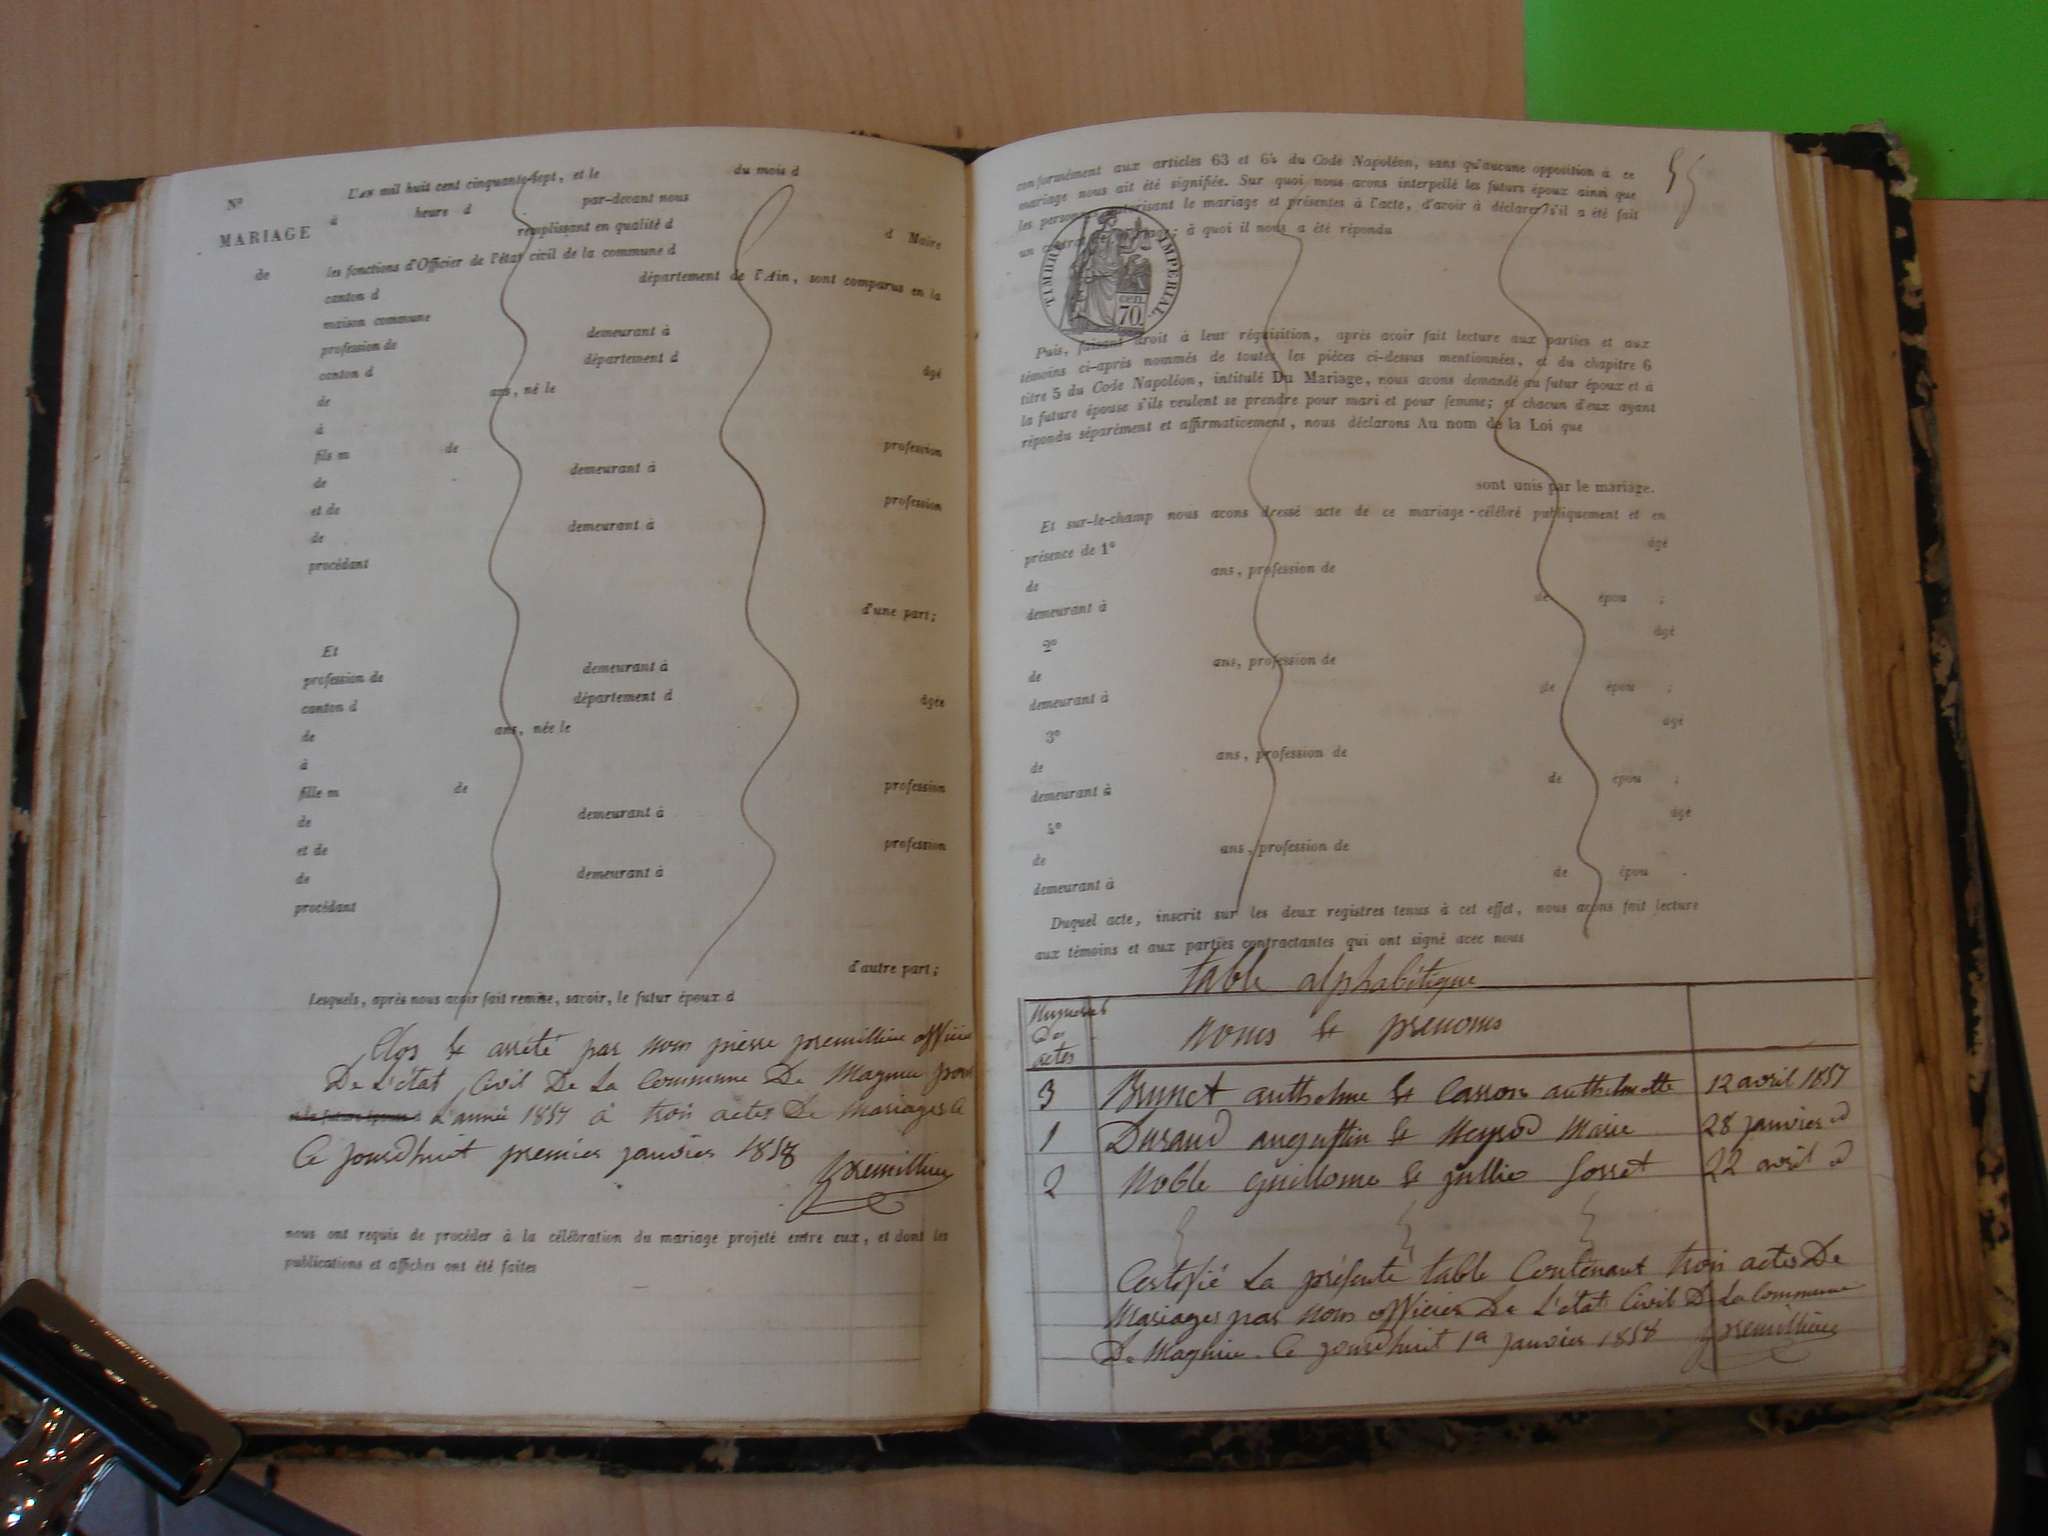 Nº
MARIAGE
de
L'AN mil huit cent cinquante-sept, et le du mois d
à heure d par-devant nous
remplissant en qualité d d Maire
les fonctions d'Officier de l'état civil de la commune d
canton d département de l'Ain, sont comparus en la
maison commune
profession de demeurant à
canton d département d
de ans, né le âgé
à
fils m de profession
de demeurant à
et de profession
de demeurant à
procédant
d'une part;
Et
profession de demeurant à
canton d département d
de ans, née le âgée
à
fille m de profession
de demeurant à
et de profession
de demeurant à
procédant
d'autre part;
Lesquels, après nous avoir fait remise, savoir, le futur époux d
Clos & arrêté par nous pierre premillieu officier
De L'état Civil De La Commune De Magnieu pour
L'année 1857 à trois actes De Mariages
Ce jourdhuit premier janvier 1858 premillieu
nous ont requis de procéder à la célébration du mariage projeté entre eux, et dont les
publications et affiches ont été faites
55
conformément aux articles 63 et 64 du Code Napoléon, sans qu'aucune opposition à ce
mariage nous ait été signifiée. Sur quoi nous avons interpellé les futurs époux ainsi que
les personnes autorisant le mariage et présentes à l'acte, d'avoir à déclarer s'il a été fait
un contrat de mariage; à quoi il nous a été répondu
TIMBRE IMPÉRIAL
70 cen.
Puis, faisant droit à leur réquisition, après avoir fait lecture aux parties et aux
témoins ci-après nommés de toutes les pièces ci-dessus mentionnées, et du chapitre 6
titre 5 du Code Napoléon, intitulé Du Mariage, nous avons demandé au futur époux et à
la future épouse s'ils veulent se prendre pour mari et pour femme; et chacun d'eux ayant
répondu séparément et affirmativement, nous déclarons Au nom de la Loi que
sont unis par le mariage.
Et sur-le-champ nous avons dressé acte de ce mariage célébré publiquement et en
présence de 1º âgé
de ans, profession de
demeurant à de épou ;
2º âgé
de ans, profession de
demeurant à de épou ;
3º âgé
de ans, profession de
demeurant à de épou ;
4º âgé
de ans, profession de
demeurant à de épou .
Duquel acte, inscrit sur les deux registres tenus à cet effet, nous avons fait lecture
aux témoins et aux parties contractantes qui ont signé avec nous
table alphabétique
Numeros
Des
actes
Noms & prenoms
3 Brunet anthelme & Carron anthelmette 12 avril 1857
1 Duraud augustin & Neyrod Marie 28 janvier d
2 Noble guillome & jullie Gorret 22 avril d
Certifié La présente table Contenant trois actes De
Mariages par nous officier De L'état Civil De La Commune
De Magnieu. Ce jourdhuit 1er janvier 1858 premillieu